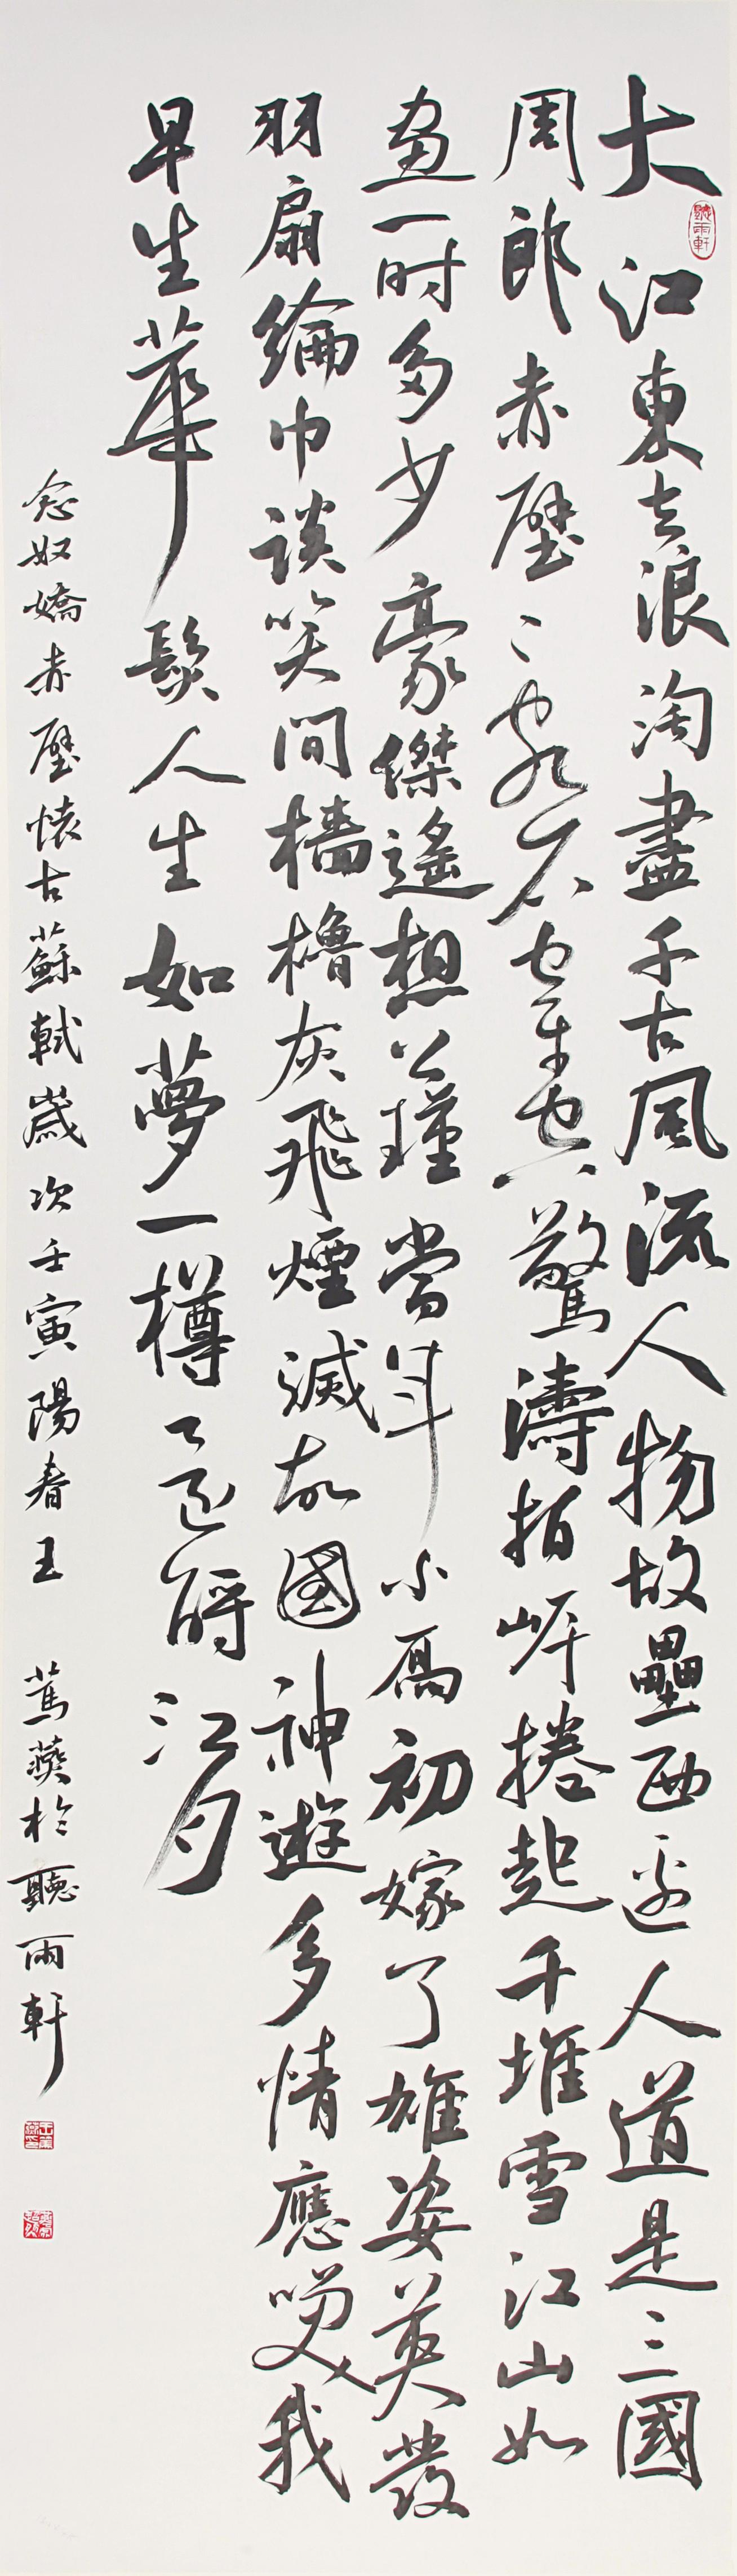 大江東去浪淘盡千古風流人物故壘西邊人道是三國
周郎赤壁亂石穿空驚濤拍岸捲起千堆雪江山如
畫一时多少豪傑遙想公瑾當年小喬初嫁了雄姿英發
羽扇綸巾談笑間檣櫓灰飛煙滅故國神遊多情應咲我
早生華髮人生如夢一樽還酹江月
念奴嬌赤壁懷古蘇軾歲次壬寅陽春王 於聽雨軒
聽雨軒